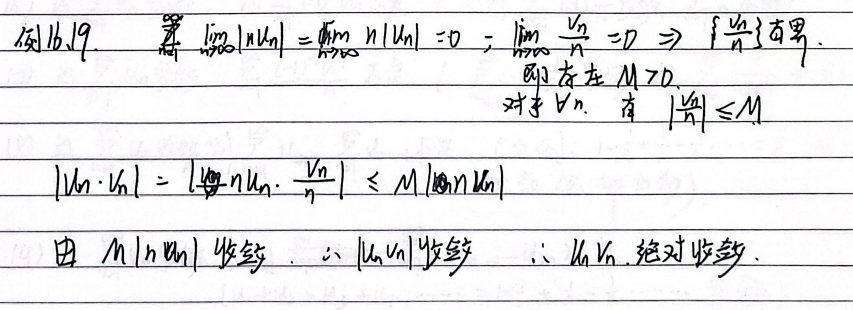 例16.19. lim n→∞ |nUn| = lim n→∞ n|Un| = 0 ; lim n→∞ Vn/n = 0 ⇒ {Vn/n} 有界.
即存在 M>0.
对于 ∀n. 有 |Vn/n| ≤ M
|Un·Vn| = |nUn · Vn/n| ≤ M|nUn|
由 M|nUn| 收敛. ∴ |UnVn| 收敛 ∴ UnVn. 绝对收敛.